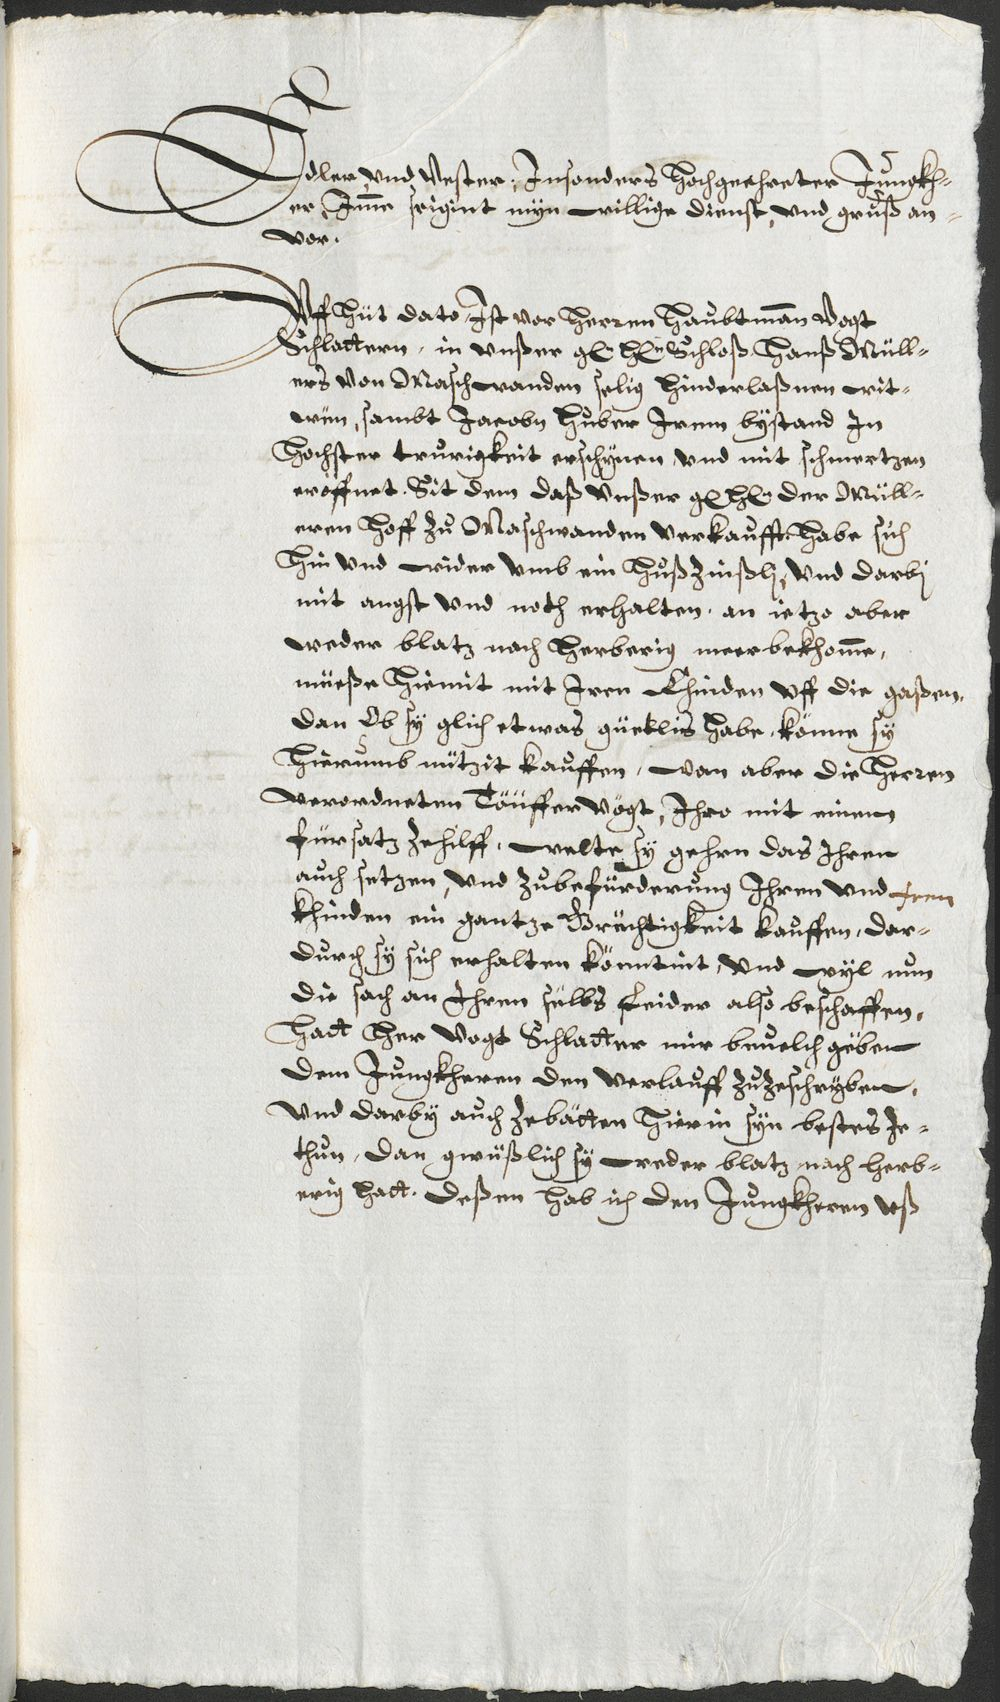 Edler und Vester, Insonders hochgeehreter Jungkh-
er, Imme seigint myn willige dienst, und gruß an-
vor.
Uff hüt dato, Ist vor herren haubtman Vogt
Schlattern, in unßer gn. hn. Schloß hanß Müll-
ers von Maschwanden selig hinderlaßnen wit-
wen, sambt Jacobn huber Irem bystand In
hochster trurigkeit erschynen, und mit schmertzen
eröffnet. Sit dem daß unßer g. h. der Müll-
eren hoff zu Maschwanden verkaufft, habe sich
hin und wider umb ein hußzinßlj, und darbj
mit angst und noth erhalten, an ietzo aber
weder blatz nach herberig meer bekhome,
müeße hiemit mit Iren Khinden uff die gaßen,
dan Ob sy glich etwas güetlis habe, könne sy
hierumb nützit kauffen, wan aber die herren
verordneten Töuffer Vögt, Ihro mit einem
fürsatz zehilff, welte sy gehrn das Ihren
auch setzen, und zubefürderung Ihren und Iren
khinden ein gantze Grächtigkeit kauffen, dar-
durch sy sich erhalten könntint, und wyl nun
die sach an Ihren sëlbs leider also beschaffen,
hatt Her Vogt Schlatter mir beuelch gëben
dem Jungkheren den verlauff zuzeschryben,
und darby auch zebätten hierin syn bestes ze-
thun, dan gwüßlich sy weder blatz nach herb-
erig hatt. Deßen hab ich den Jungkheren uß